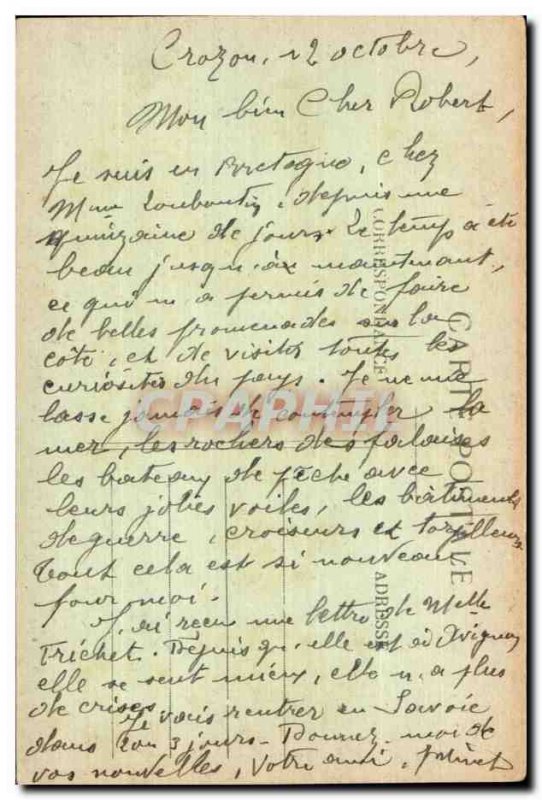 Crozon, 12 octobre,
Mon bien Cher Robert,
Je suis en Bretagne, chez
Mme depuis une
quinzaine de jours. Le temps a été
beau jusqu'au maintenant,
ce qui m'a permis de faire
de belles promenades sur la
côte, et de visiter toutes les
curiosités du pays. Je ne me
lasse jamais de contempler la
mer, les rochers des falaises
les bateaux de pêche avec
leurs jolies voiles, les bâtiments
de guerre, croiseurs et torpilleurs
Tout cela est si nouveau
pour moi.
J'ai reçu une lettre de Melle
Trichet. Depuis qu'elle est à Avignon
elle se sent mieux, elle n'a plus
de crises.
Je vais rentrer en Savoie
dans 2 ou 3 jours - Donnez-moi de
vos nouvelles, votre ami,
CARTE POSTALE
CORRESPONDANCE
ADRESSE
CPAPHIL